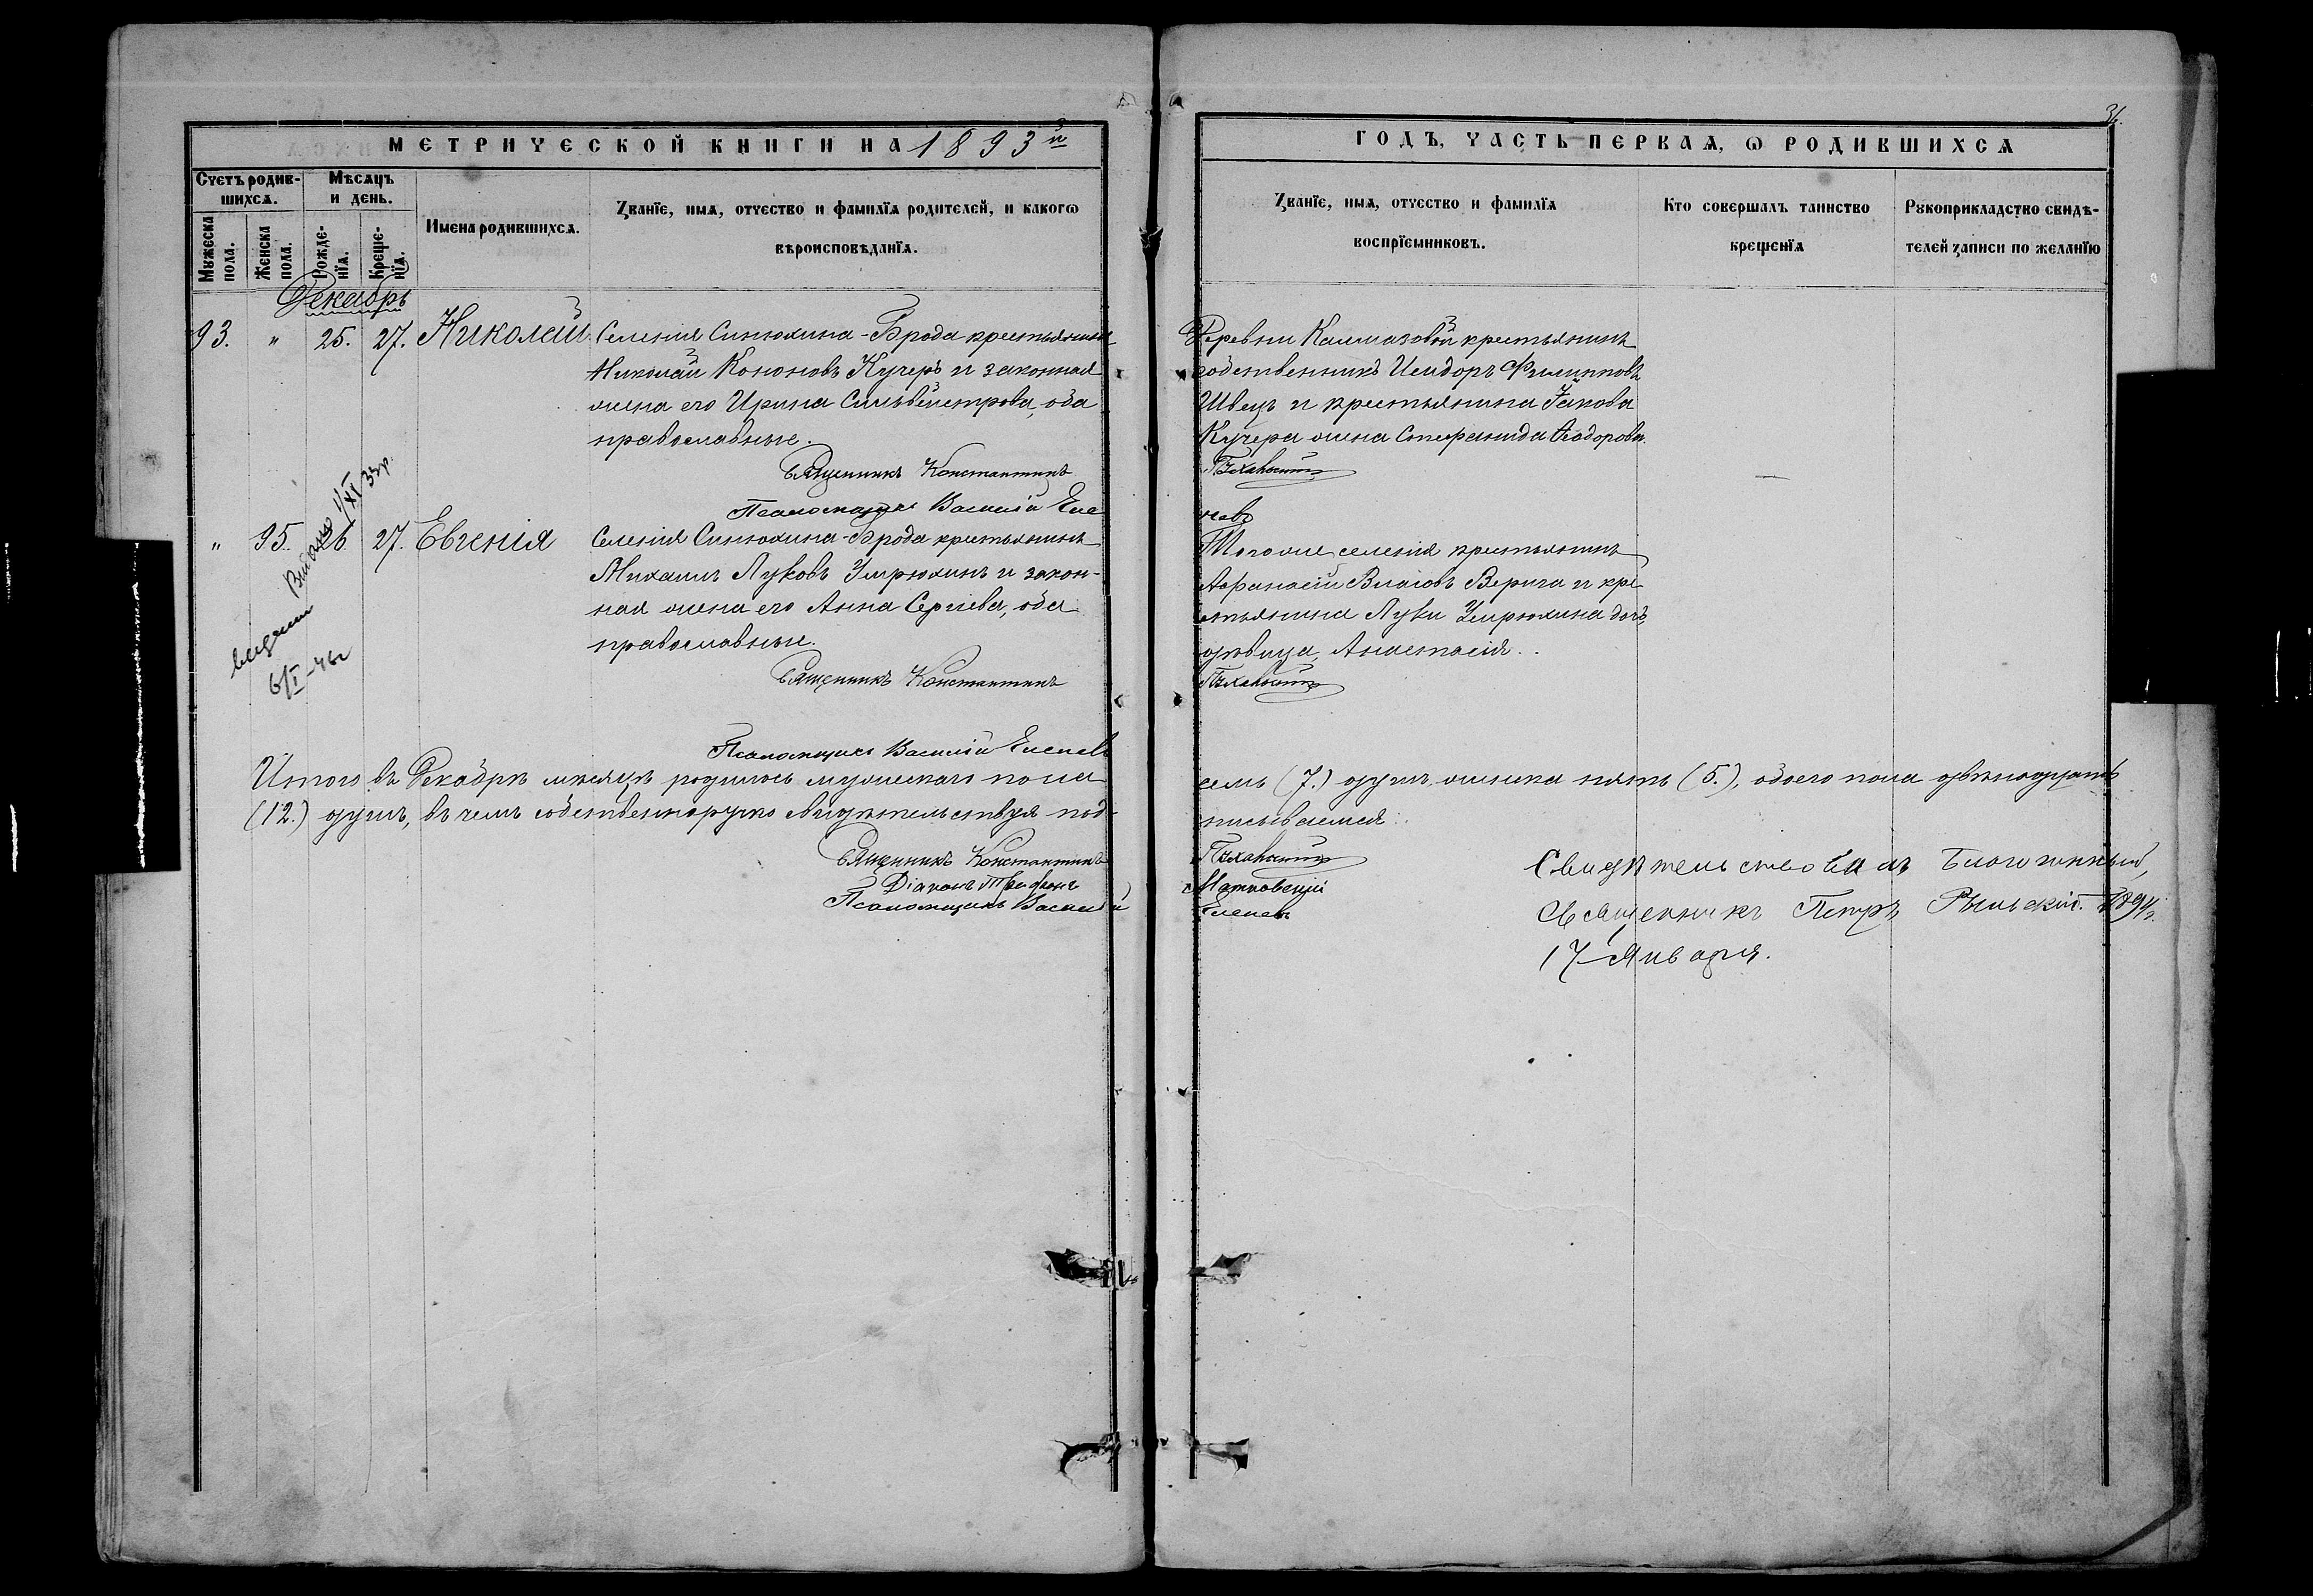 31.
МЕТРИЧЕСКОЙ КНИГИ НА 1893й
ГОДЪ, ЧАСТЬ ПЕРВАѦ, Ѡ РОДИВШИХСѦ
Счетъ родив-
шихсѧ.
Мꙋжеска
пола.
Женска
пола.
Мѣсѧцъ
и день.
Рожде-
нїѧ.
Креще-
нїѧ.
Имена родившихсѧ.
Званїе, имѧ, отчество и фамилїѧ родителей, и какогѡ
вѣроисповѣданїѧ.
Званїе, имѧ, отчество и фамилїѧ
воспрїемниковъ.
Кто совершалъ таинство
крещенїѧ
Рꙋкоприкладство свидѣ-
телей записи по желанїю
Декабрь
93. " 25. 27. Николай
Селенія Синюхина-Брода крестьянинъ
Николай Кононовъ Кучеръ и законная
жена его Ирина Сильвестрова, оба
православные.
Священникъ Константинъ
Псаломщикъ Василій Еле
Деревни Калмазовой крестьянинъ
собственникъ Исидоръ Филипповъ
Швецъ и крестьянина Іакова
Кучера жена Стефанида Ѳеодорова.
" 95. 26. 27. Евгенія
Селенія Синюхина-Брода крестьянинъ
Михаилъ Луковъ Умрюхинъ и закон-
ная жена его Анна Сергіева, оба
православные.
Священникъ Константинъ
Псаломщикъ Василій
Тогоже селенія крестьянинъ
Аѳанасій Власовъ Верига и кре
стьянина Луки Умрюхина дочь,
дѣвица, Анастасія.
1/XI 33р.
видачи
6/I-46г
Итого въ Декабрѣ мѣсяцѣ родилось мужескаго пола
семь (7.) душъ, женска пять (5.), обоего пола двѣнадцать
(12.) душъ, въ чемъ собственноручно свидѣтельствуя под-
писываемся.
Священникъ Константинъ
Діаконъ Трифонъ
Псаломщикъ Василій
Свидѣтельствовалъ Благочинный,
Священникъ Петръ 1894 г.
17 Января.